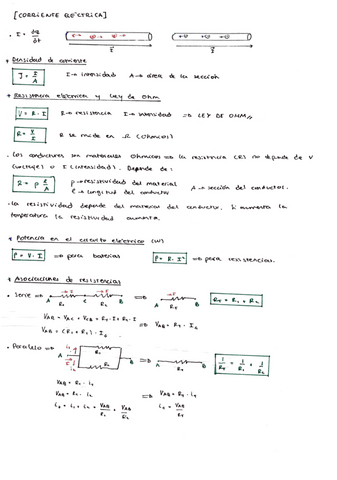 [CORRIENTE ELÉCTRICA]
· I = dQ/dt
I
I
* Densidad de corriente
J = I/A I → intensidad A → área de la sección
* Resistencia eléctrica y Ley de Ohm
V = R · I R → resistencia I → intensidad => LEY DE OHM
R = V/I R se mide en Ω (Ohmios)
· Los conductores son materiales Ohmicos => la resistencia (R) no depende de V
(voltaje) o I (intensidad). Depende de:
R = ρ ℓ/A ρ → resistividad del material A → sección del conductor.
ℓ → longitud del conductor
· La resistividad depende del material del conductor. Si aumenta la
temperatura la resistividad aumenta.
* Potencia en el circuito eléctrico (W)
P = V · I => para baterías P = R · I² => para resistencias.
* Asociaciones de resistencias
· Serie => A R₁ R₂ B => A B R_T = R₁ + R₂
V_AB = V_AC + V_CB = R₁ · I + R₂ · I
V_AB = (R₁ + R₂) · I => V_AB = R_T · I
· Paralelo => A R₁ R₂ B => A B 1/R_T = 1/R₁ + 1/R₂
V_AB = R₁ · i₁
V_AB = R₂ · i₂ => V_AB = R_T · i